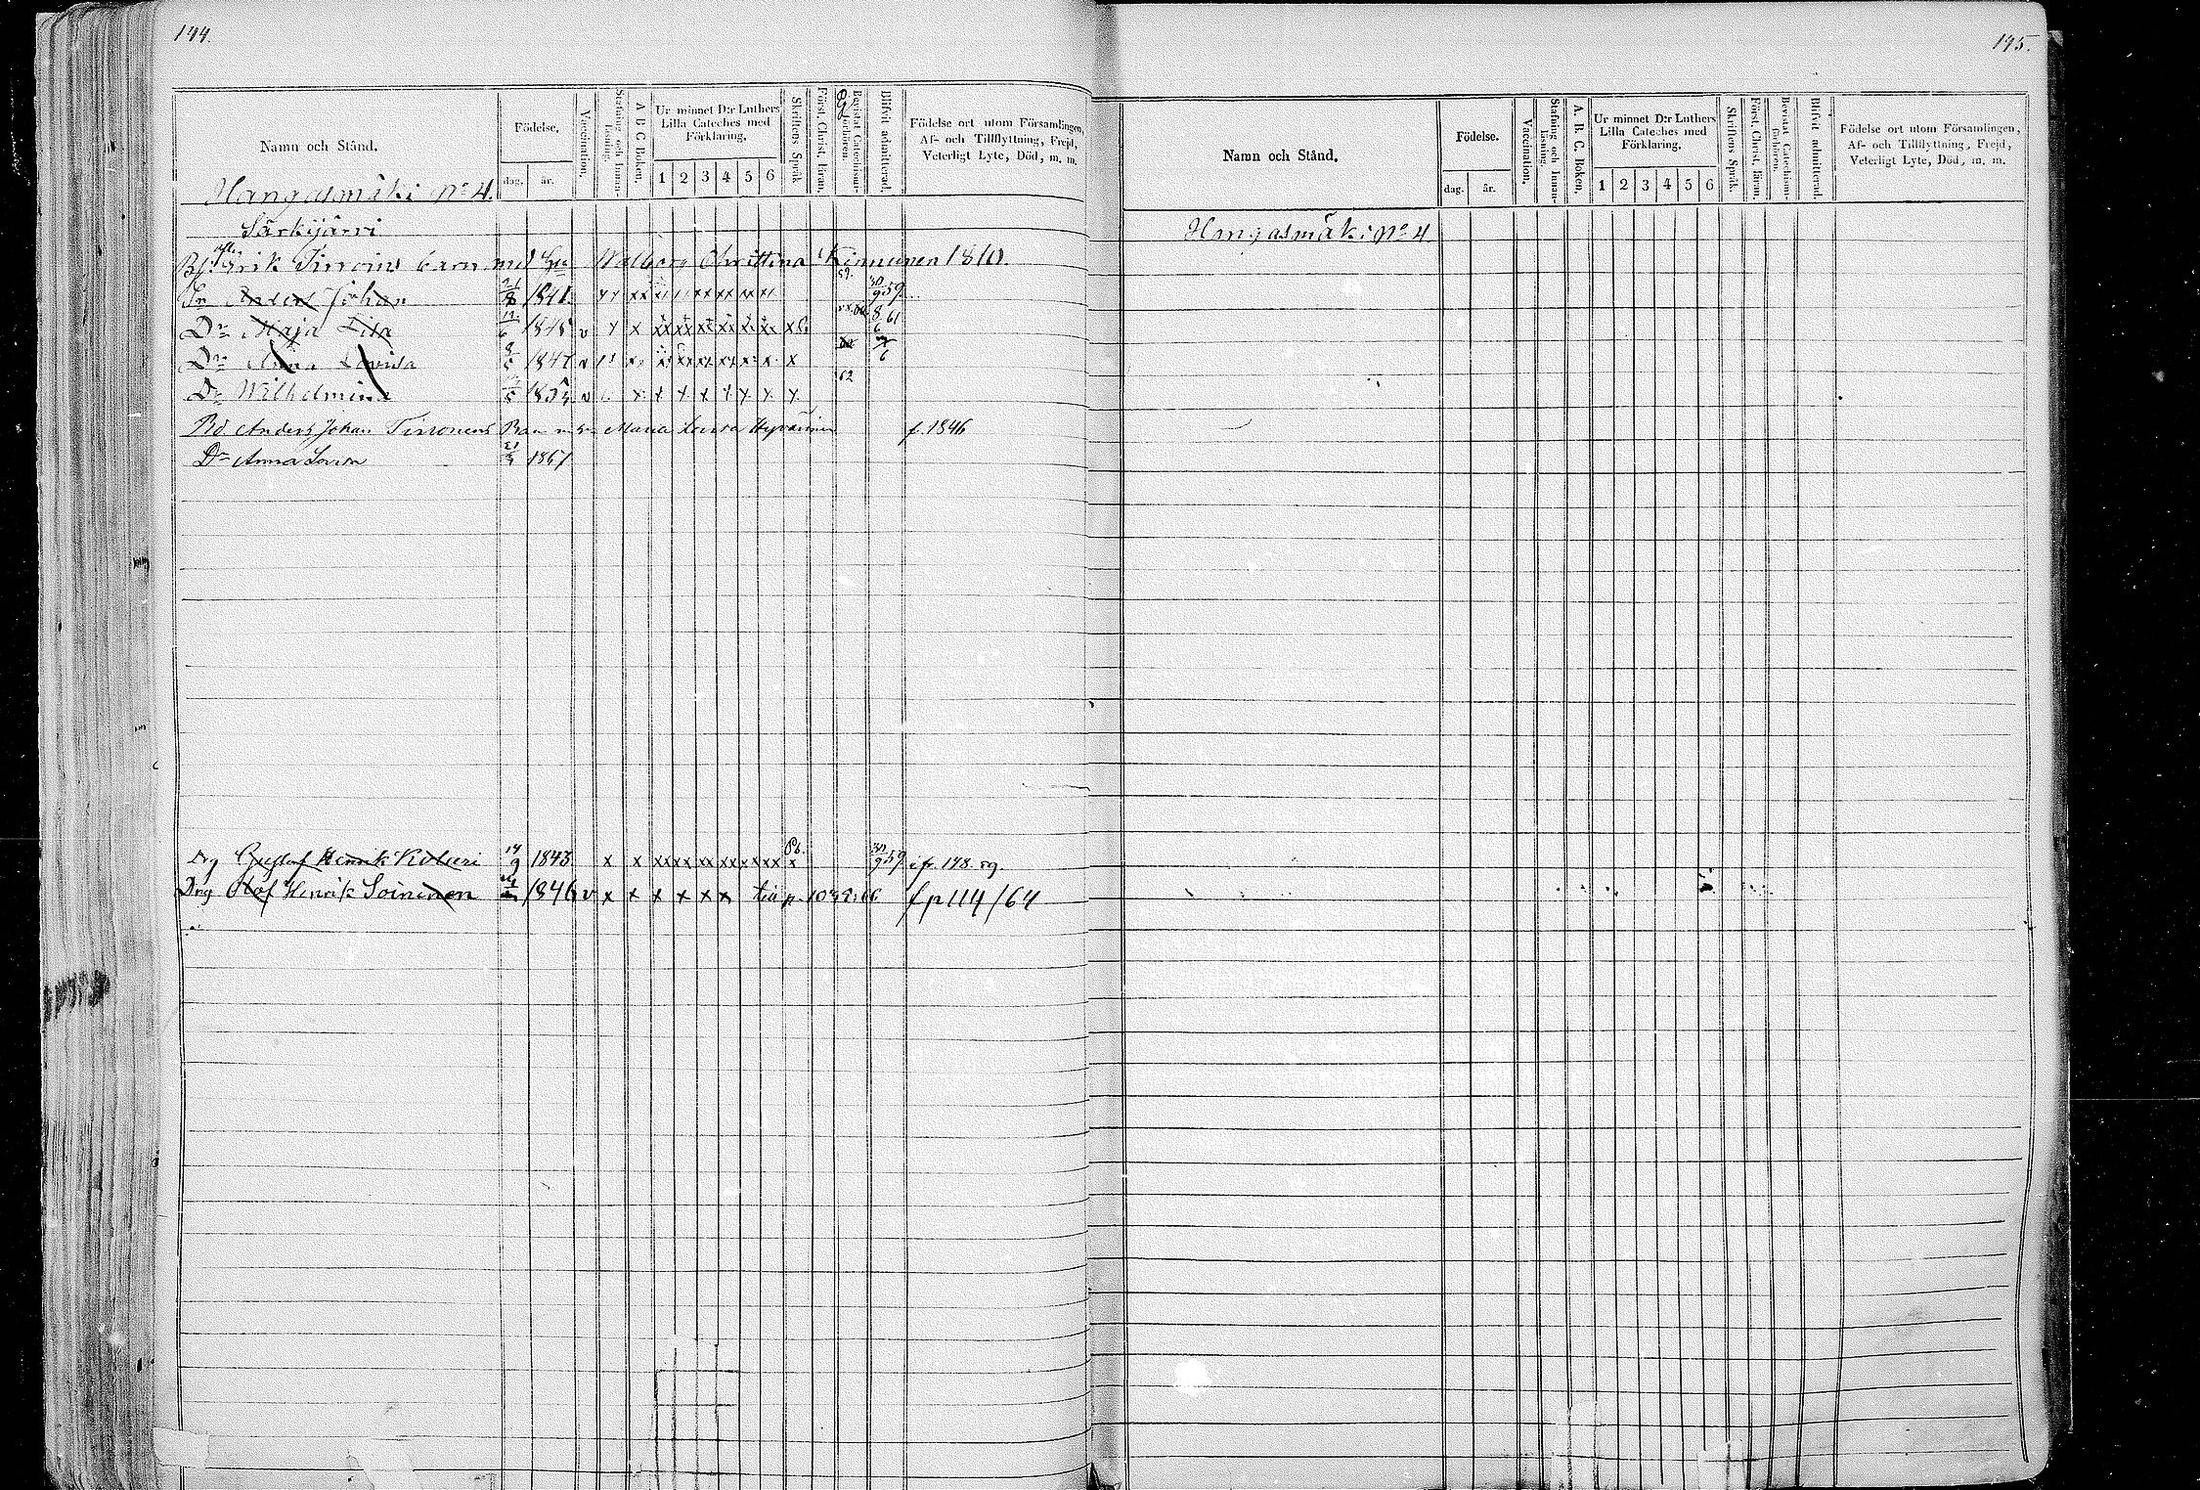 144.
Namn och Stånd.
Födelse.
dag. år.
Vaccination.
Stafning och Innan-läsning.
A B C Boken.
Ur minnet D:r Luthers Lilla Cateches med Förklaring.
1 2 3 4 5 6
Skriftens Språk
Först. Christ. läran.
Bevistat Catechismi-förhören.
Blifvit admitterad.
Födelse ort utom Församlingen,
Af- och Tillflyttning, Frejd,
Veterligt Lyte, Död, m. m.
Hangasmäki No 4.
Särkijärvi
Erik Tirroins barn med Hu Walborg Christina Kinnunen 1810.
Sn Anders Johan 1841. x x x x x x x x 30/9 59.
Dr Maja Lisa 12/6 1845 v x x xx xx xx xx xx xx x 8/6 61
Dr Anna Lovisa 1847 v x x x x x x x x
Dr Wilhelmina v x x x x x x x x 62
Bd Anders Johan Tirronens Barn m hu Maria Lovisa Hyvärinen f. 1846
Dr Anna Lovisa 1867
Drg Gustaf Henrik 14/9 1843 x x xx xx xx xx xx xx x 30/9 59 ifr. 148. 59.
Drg Olof Henrik Soininen 1846 v x x x x x x f p 114/64
145.
Namn och Stånd.
Födelse.
dag. år.
Vaccination.
Stafning och Innan-läsning.
A. B. C. Boken.
Ur minnet D:r Luthers Lilla Cateches med Förklaring.
1 2 3 4 5 6
Skriftens Språk.
Först. Christ. läran.
Bevistat Catechismi-förhören.
Blifvit admitterad.
Födelse ort utom Församlingen,
Af- och Tillflyttning, Frejd,
Veterligt Lyte, Död, m. m.
Hangasmäki No 4.